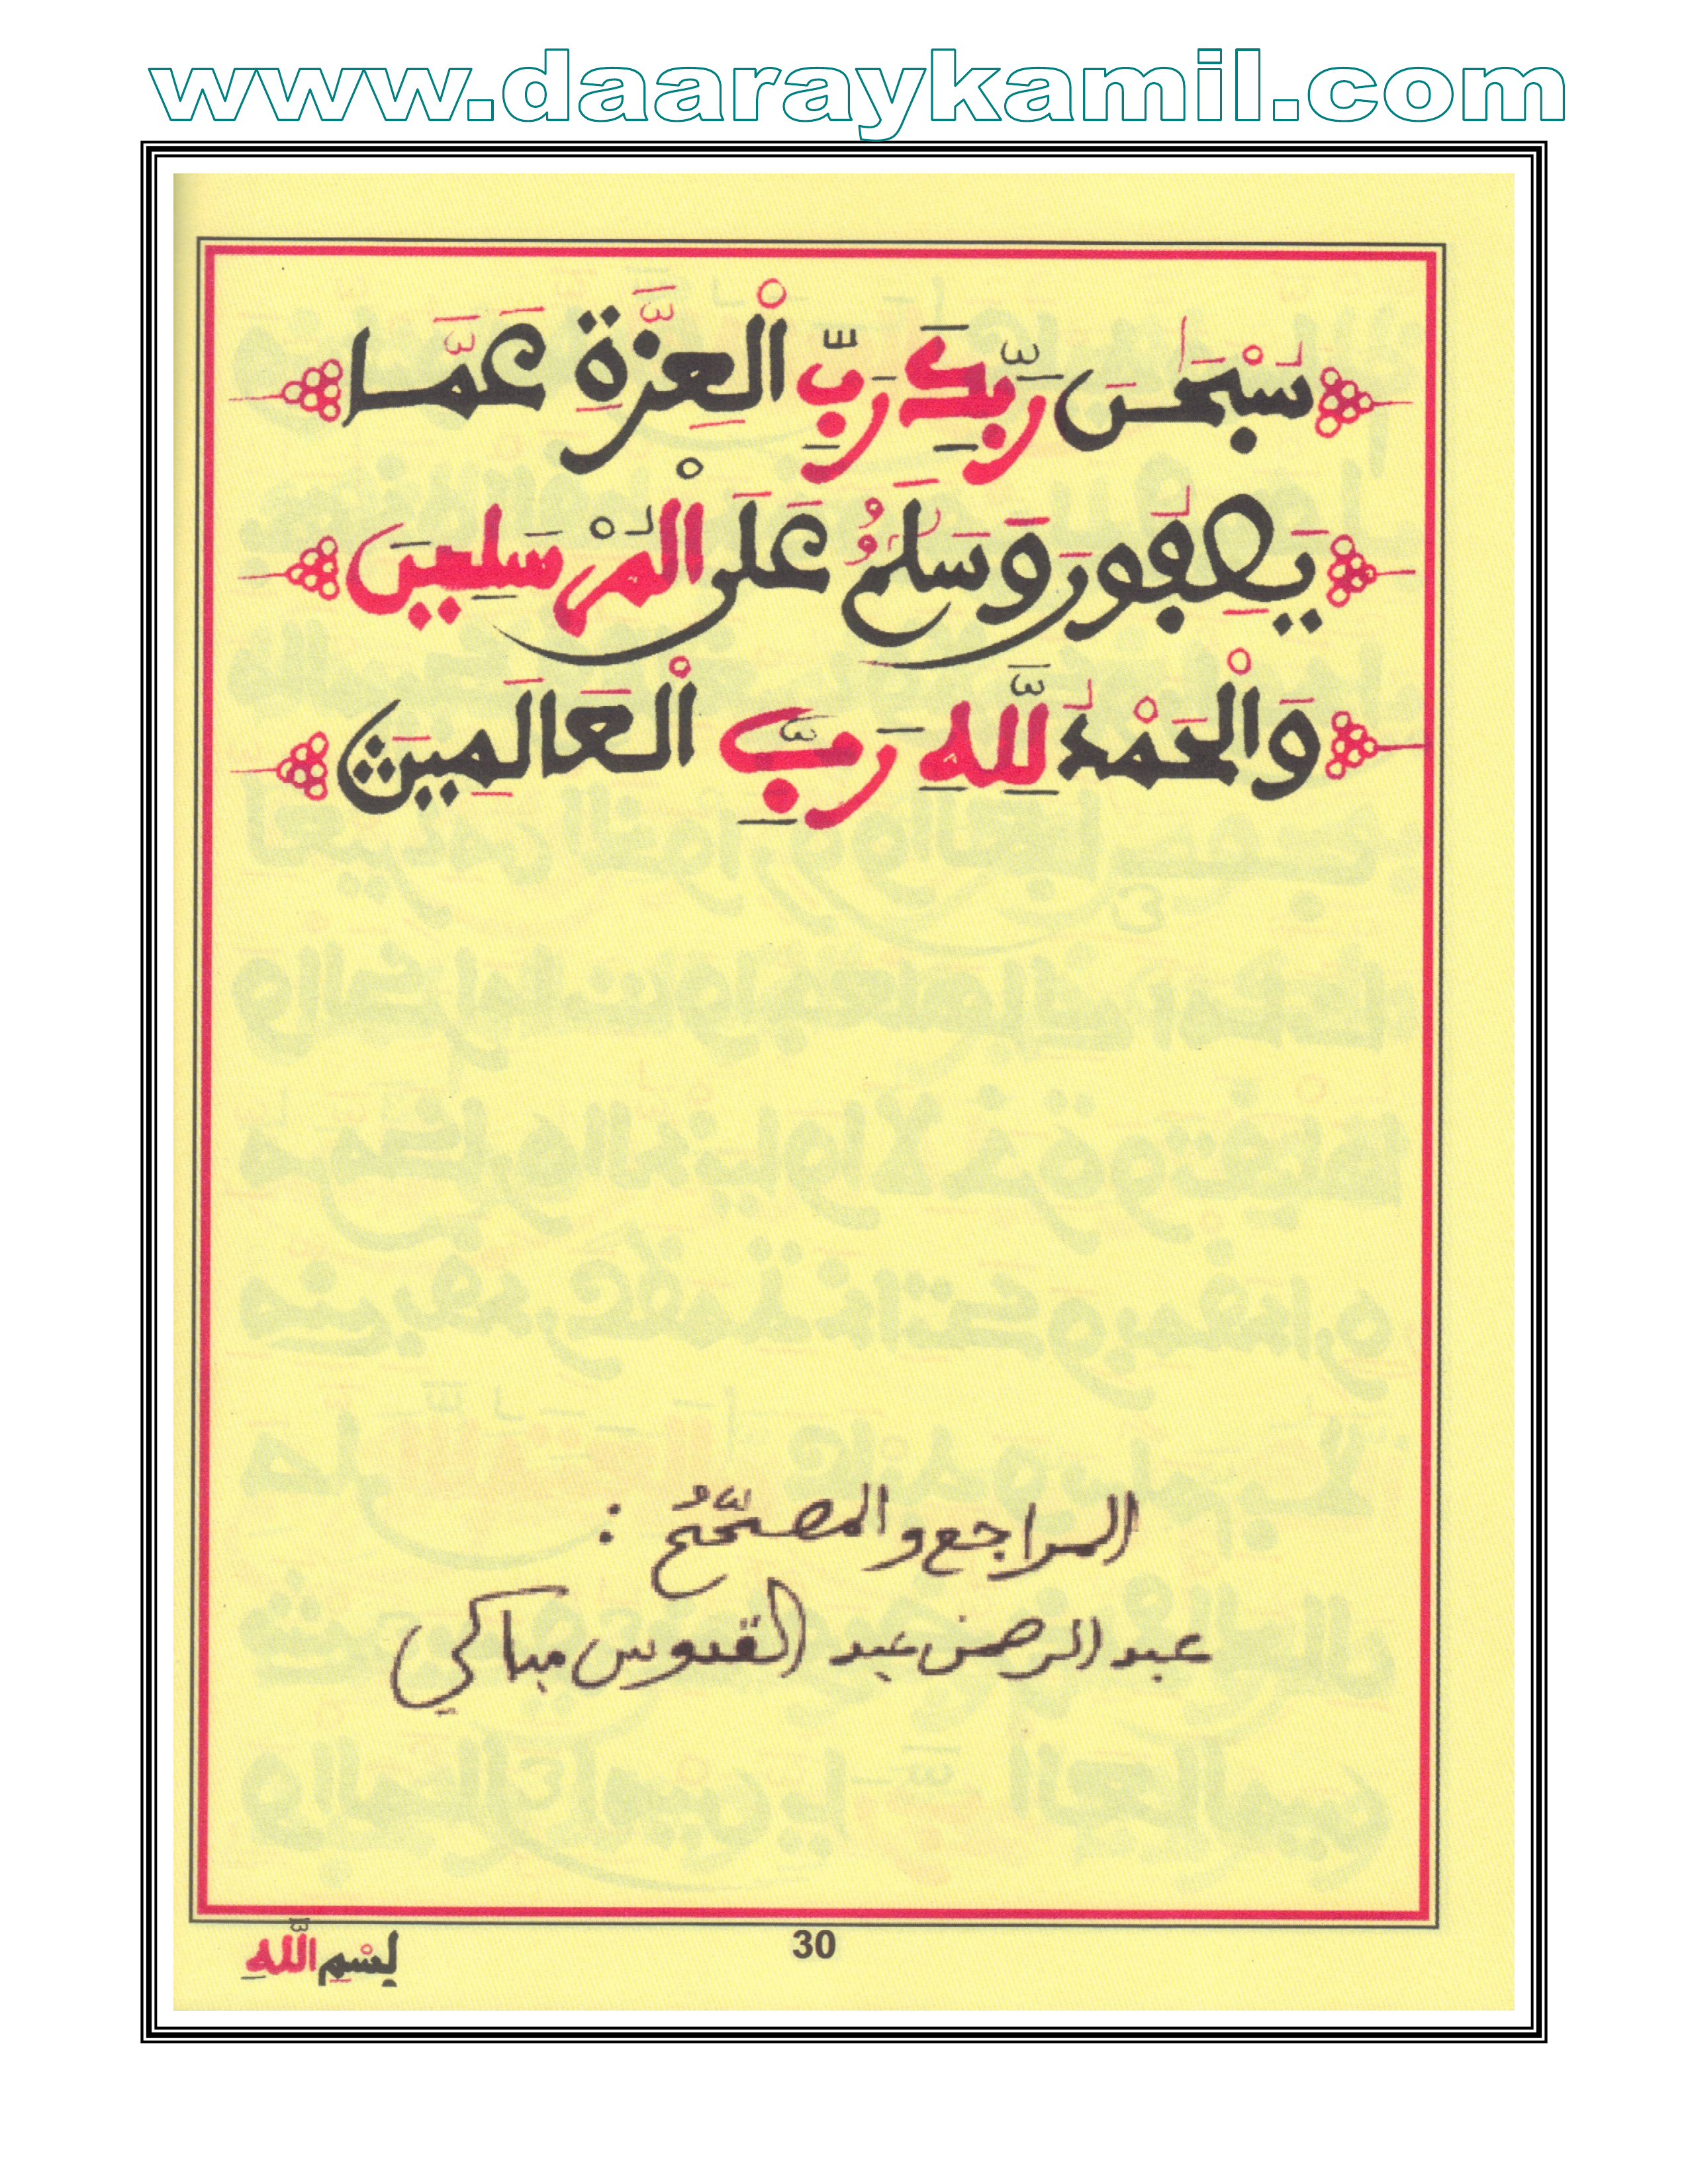 www.daaraykamil.com
سُبْحَٰنَ رَبِّكَ رَبِّ الْعِزَّةِ عَمَّا
يَصِفُونَ وَسَلَٰمٌ عَلَى الْمُرْسَلِينَ
وَالْحَمْدُ لِلَّهِ رَبِّ الْعَالَمِينَ
المراجع والمصحّحُ :
عبد الرحمن عبد القدوس مباكي
30
بِسْمِ اللَّهِ